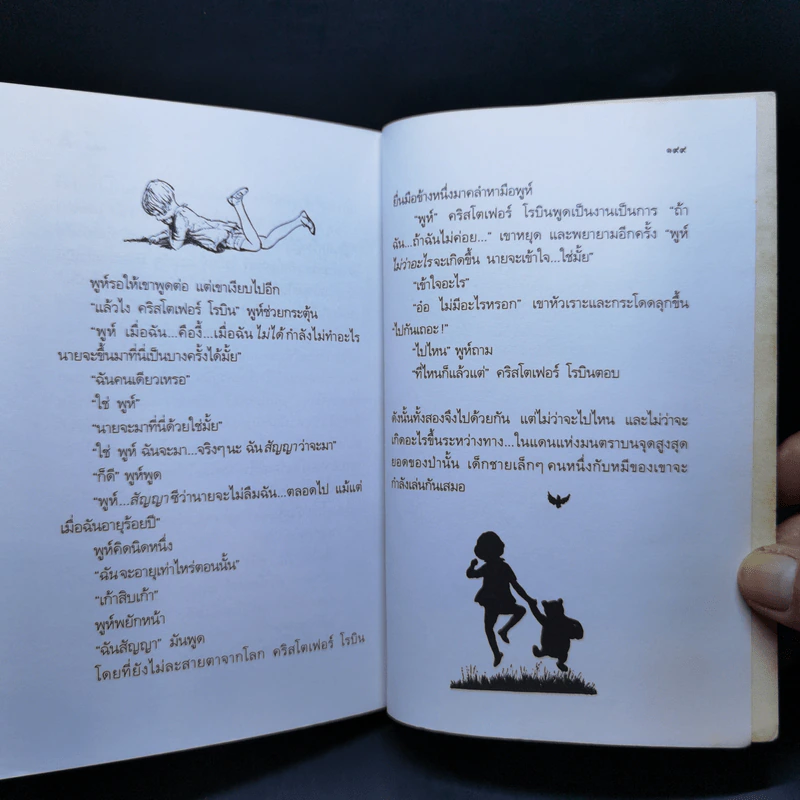 พูห์รอให้เขาพูดต่อ แต่เขาเงียบไปอีก
“แล้วไง คริสโตเฟอร์ โรบิน” พูห์ช่วยกระตุ้น
“พูห์ เมื่อฉัน...คืองี้...เมื่อฉัน ไม่ได้ กำลังไม่ทำอะไร
นายจะขึ้นมาที่นี่เป็นบางครั้งได้มั้ย”
“ฉันคนเดียวเหรอ”
“ใช่ พูห์”
“นายจะมาที่นี่ด้วยใช่มั้ย”
“ใช่ พูห์ ฉันจะมา...จริงๆ นะ ฉัน สัญญา ว่าจะมา”
“ก็ดี” พูห์พูด
“พูห์... สัญญา ซีว่านายจะไม่ลืมฉัน...ตลอดไป แม้แต่
เมื่อฉันอายุร้อยปี”
พูห์คิดนิดหนึ่ง
“ฉัน จะอายุเท่าไหร่ตอนนั้น”
“เก้าสิบเก้า”
พูห์พยักหน้า
“ฉันสัญญา” มันพูด
โดยที่ยังไม่ละสายตาจากโลก คริสโตเฟอร์ โรบิน
๑๙๙
ยื่นมือข้างหนึ่งมาคลำหามือพูห์
“พูห์” คริสโตเฟอร์ โรบินพูดเป็นงานเป็นการ “ถ้า
ฉัน...ถ้าฉันไม่ค่อย...” เขาหยุด และพยายามอีกครั้ง “พูห์
ไม่ว่าอะไรจะเกิดขึ้น นายจะเข้าใจ...ใช่มั้ย”
“เข้าใจอะไร”
“อ๋อ ไม่มีอะไรหรอก” เขาหัวเราะและกระโดดลุกขึ้น
“ไปกันเถอะ!”
“ไปไหน” พูห์ถาม
“ที่ไหนก็แล้วแต่” คริสโตเฟอร์ โรบินตอบ
ดังนั้นทั้งสองจึงไปด้วยกัน แต่ไม่ว่าจะไปไหน และไม่ว่าจะ
เกิดอะไรขึ้นระหว่างทาง...ในแดนแห่งมนตราบนจุดสูงสุด
ยอดของป่านั้น เด็กชายเล็กๆ คนหนึ่งกับหมีของเขาจะ
กำลังเล่นกันเสมอ